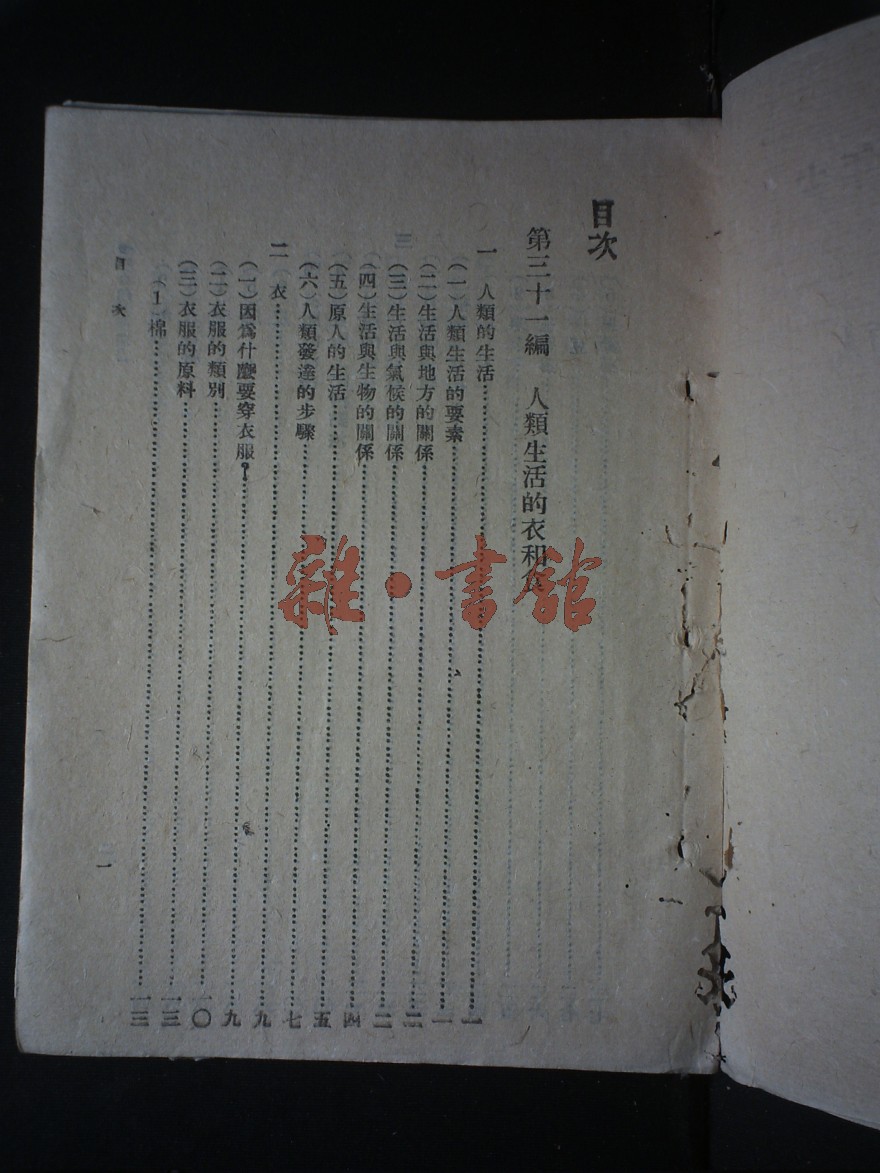 目次
第三十一編　人類生活的衣和食
一　人類的生活……一
（一）人類生活的要素……一
（二）生活與地方的關係……二
（三）生活與氣候的關係……二
（四）生活與生物的關係……四
（五）原人的生活……五
（六）人類發達的步驟……七
二　衣……九
（一）因爲什麼要穿衣服？……九
（二）衣服的類別……一〇
（三）衣服的原料……一三
（1）棉……一三
目次
一
雜·書館